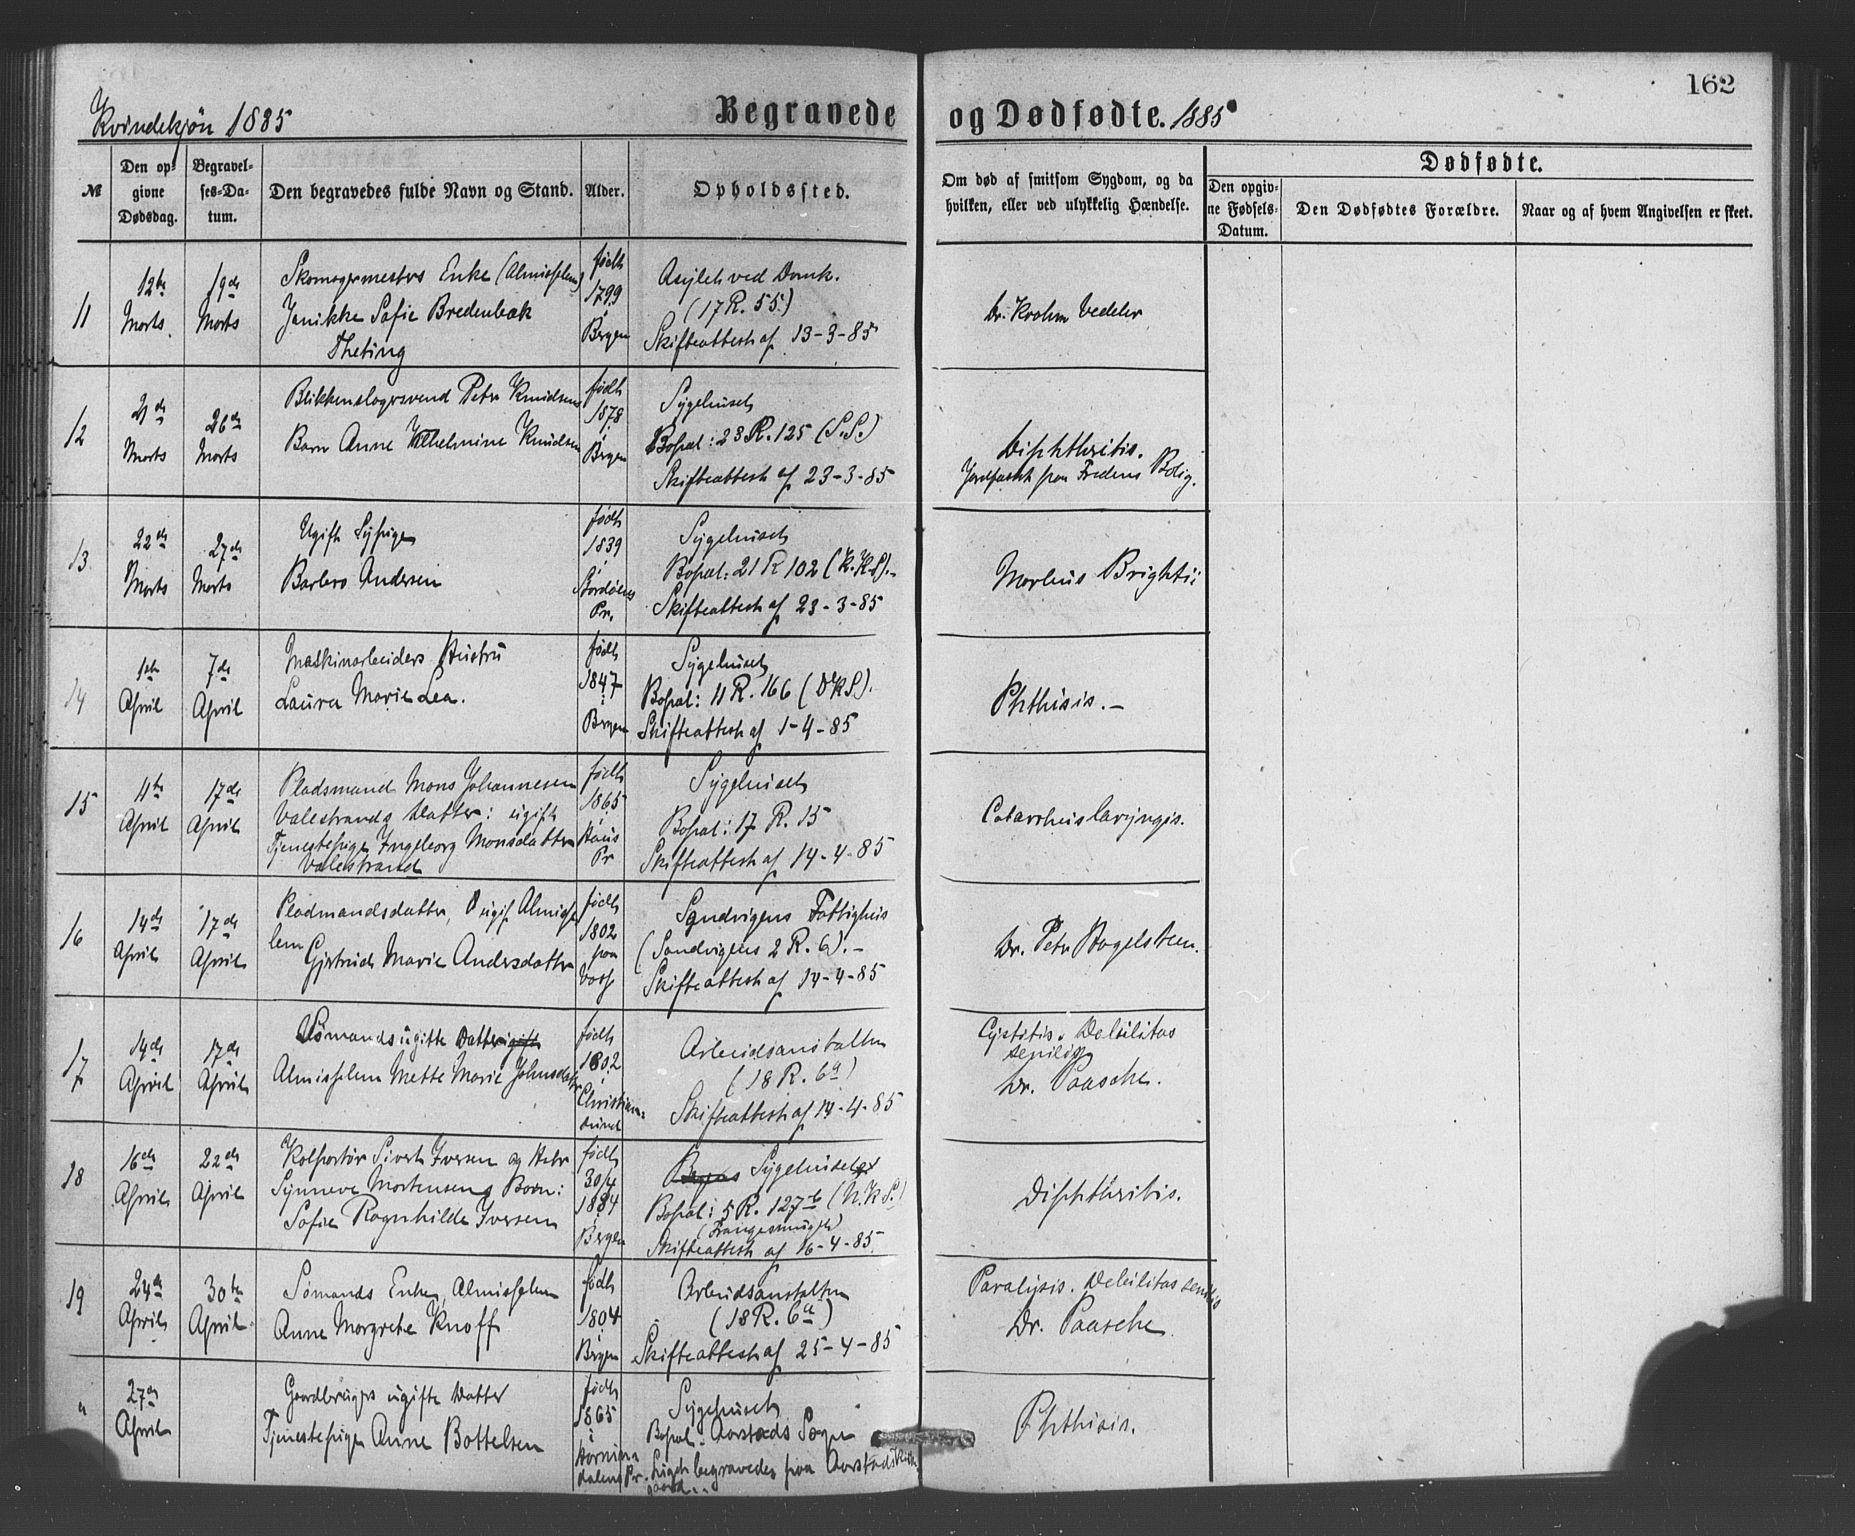 162
Kvindekjøn 1885
Begravede og Dødfødte. 1885
№
Den opgivne Dødsdag.
Begravelses-Datum.
Den begravedes fulde Navn og Stand.
Alder.
Opholdssted.
Om død af smitsom Sygdom, og da hvilken, eller ved ulykkelig Hændelse.
Dødfødte.
Den opgivne Fødsels-Datum.
Den Dødfødtes Forældre.
Naar og af hvem Angivelsen er skeet.
11
12te Marts
19de Marts
Skomagermesters Enke (Almisselem)
Janikke Sofie Bredenbæk
Theting
født 1799 i Bergen
Asylet ved Domk.
(17 R. 55)
Skifteattest af 13-3-85
Dr. Krohn Vedeler
12
21de Marts
26de Marts
Blikkenslagersvend Peter Knudsens
Barn Anne Wilhelmine Knudsen
født 1878 i Bergen
Sygehuset
Bopæl: 23 R. 125 (S.S.)
Skifteattest af 23-3-85
Diphtheritis.
Jordfæstet paa Fredens Bolig.
13
22de Marts
27de Marts
Ugift Sypige
Barbro Andersen
født 1839 i Pr.
Sygehuset
Bopæl: 21 R 102 (K.K.S).-
Skifteattest af 23-3-85
Morbus Brightii
14
1ste April
7de April
Maskinarbeiders Hustru
Laura Marie Lea.
født 1847 i Bergen
Sygehuset
Bopæl: 11 R. 166 (DKS).
Skifteattest af 1-4-85
Phthisis.-
15
11te April
17de April
Pladsmand Mons Johannesen
Valestrands Datter: ugift
Tjenestepige Ingeborg Monsdatter
Valestrand
født 1865 i Haus Pr
Sygehuset
Bopæl: 17 R. 15
Skifteattest af 14-4-85
Catarrhus laryngis.
16
14de April
17de April
Pladmandsdatter, ugift Almisse
lem Gjertrud Marie Andersdatter
født 1802 paa Voss
Sandvigens Fattighus
(Sandvigens 2 R. 6).-
Skifteattest af 14-4-85
Dr. Peter Hagelsteen.
17
14de April
17de April
Sömands ugifte Datter ugift
Almisselem Mette Marie Johnsdatter
født 1802 i Christiansund
Arbeidsanstalten
(18 R. 6a)
Skifteattest af 14-4-85
Cystitis. Debilitas
senilis
Dr. Paasche.
18
16de April
22de April
Kolportör Sivert Iversen og Hustru
Synneve Mortensens Barn:
Sofie Ragnhilde Iversen
født 30/4 1884 i Bergen
Sygehuset
Bopæl: 5 R. 127b (N.K.S.)
Skifteattest af 16-4-85
Diphtheritis.
19
24de April
30te April
Sömands Enke, Almisselem
Anne Margrete Knoff
født 1804 i Bergen
Arbeidsanstalten
(18 R. 6a)
Skifteattest af 25-4-85
Paralysis. Debilitas senilis
Dr. Paasche
"
27de April
Gaardbrugers ugifte Datter
Tjenestepige Anne Bottelsen
født 1865 i Hornindalens Pr.
Sygehuset
Bopæl. Aarstads Sogn
Liget begravedes paa Aarstads Kirke
gaard..
Phthisis.